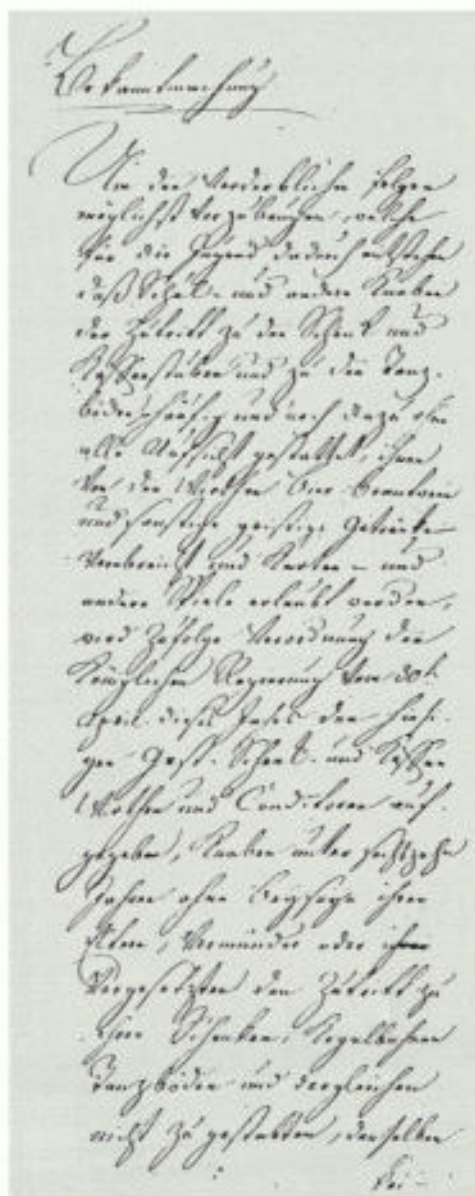 Bekanntmachung
Um den verderblichen Folgen
möglichst vorzubeugen, welche
für die Jugend dadurch entstehen
daß Schul- und andere Knaben
der Zutritt zu den Schenk und
Kaffeestuben und zu den Tanz-
böden häufig und noch dazu ohne
alle Aufsicht gestattet, ihnen
von den Wirthen Bier Branntwein
und sonstige geistige Getränke
verabreicht und Karten- und
andere Spiele erlaubt werden,
wird zufolge Verordnung der
Königlichen Regierung vom 30t
April dieses Jahres den hiesi-
gen Gast- Schenk- und Kaffee
Wirthen und Conditoren auf-
gegeben, Knaben unter sechszehn
Jahren ohne Beyseyn ihrer
Eltern, Vormünder oder ihrer
Vorgesetzten den Zutritt zu
ihren Schenken, Kegelbahnen
Tanzböden und dergleichen
nicht zu gestatten, denselben
kei-